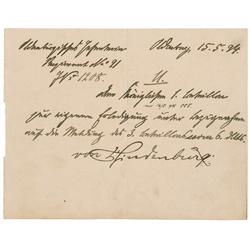 Oldenburgisches Infanterie Oldenburg, 15.5.94.
Regiment No. 91
J.No. 1208. U.
dem Königlichen 1. Bataillon
zur eigenen Erledigung unter Bezugnahme
auf die Meldung des
von Hindenburg.